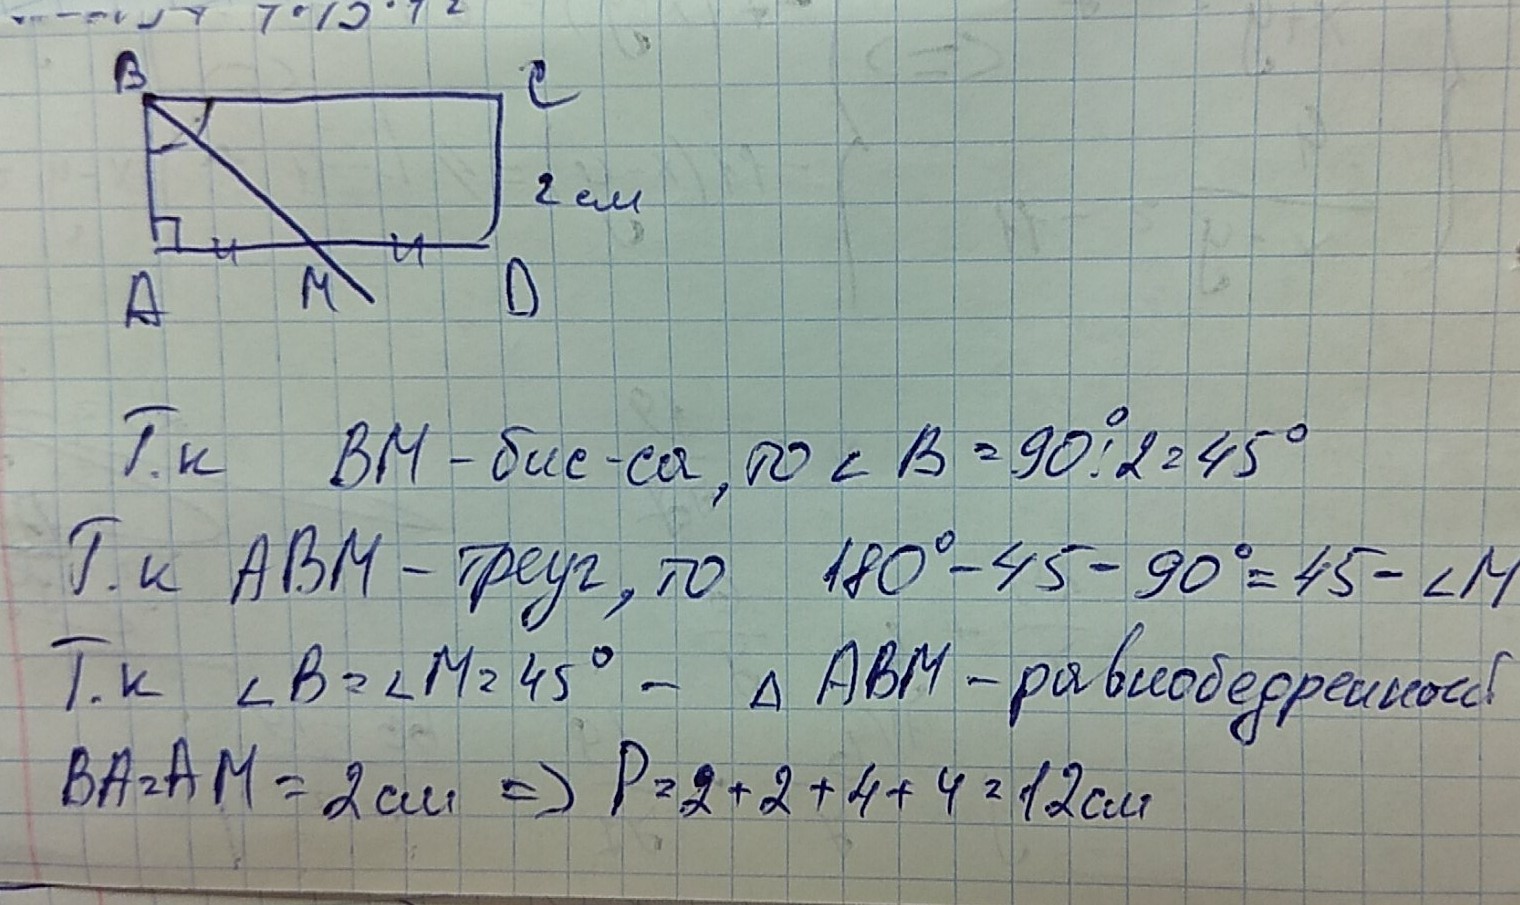 B
C
2 см
A
M
D
Т.к BM - бис-са, то ∠ B = 90° : 2 = 45°
Т.к ABM - треуг, то 180° - 45 - 90° = 45 - ∠M
Т.к ∠B = ∠M = 45° - △ ABM - равнобедренный
BA = AM = 2 см => P = 2 + 2 + 4 + 4 = 12 см